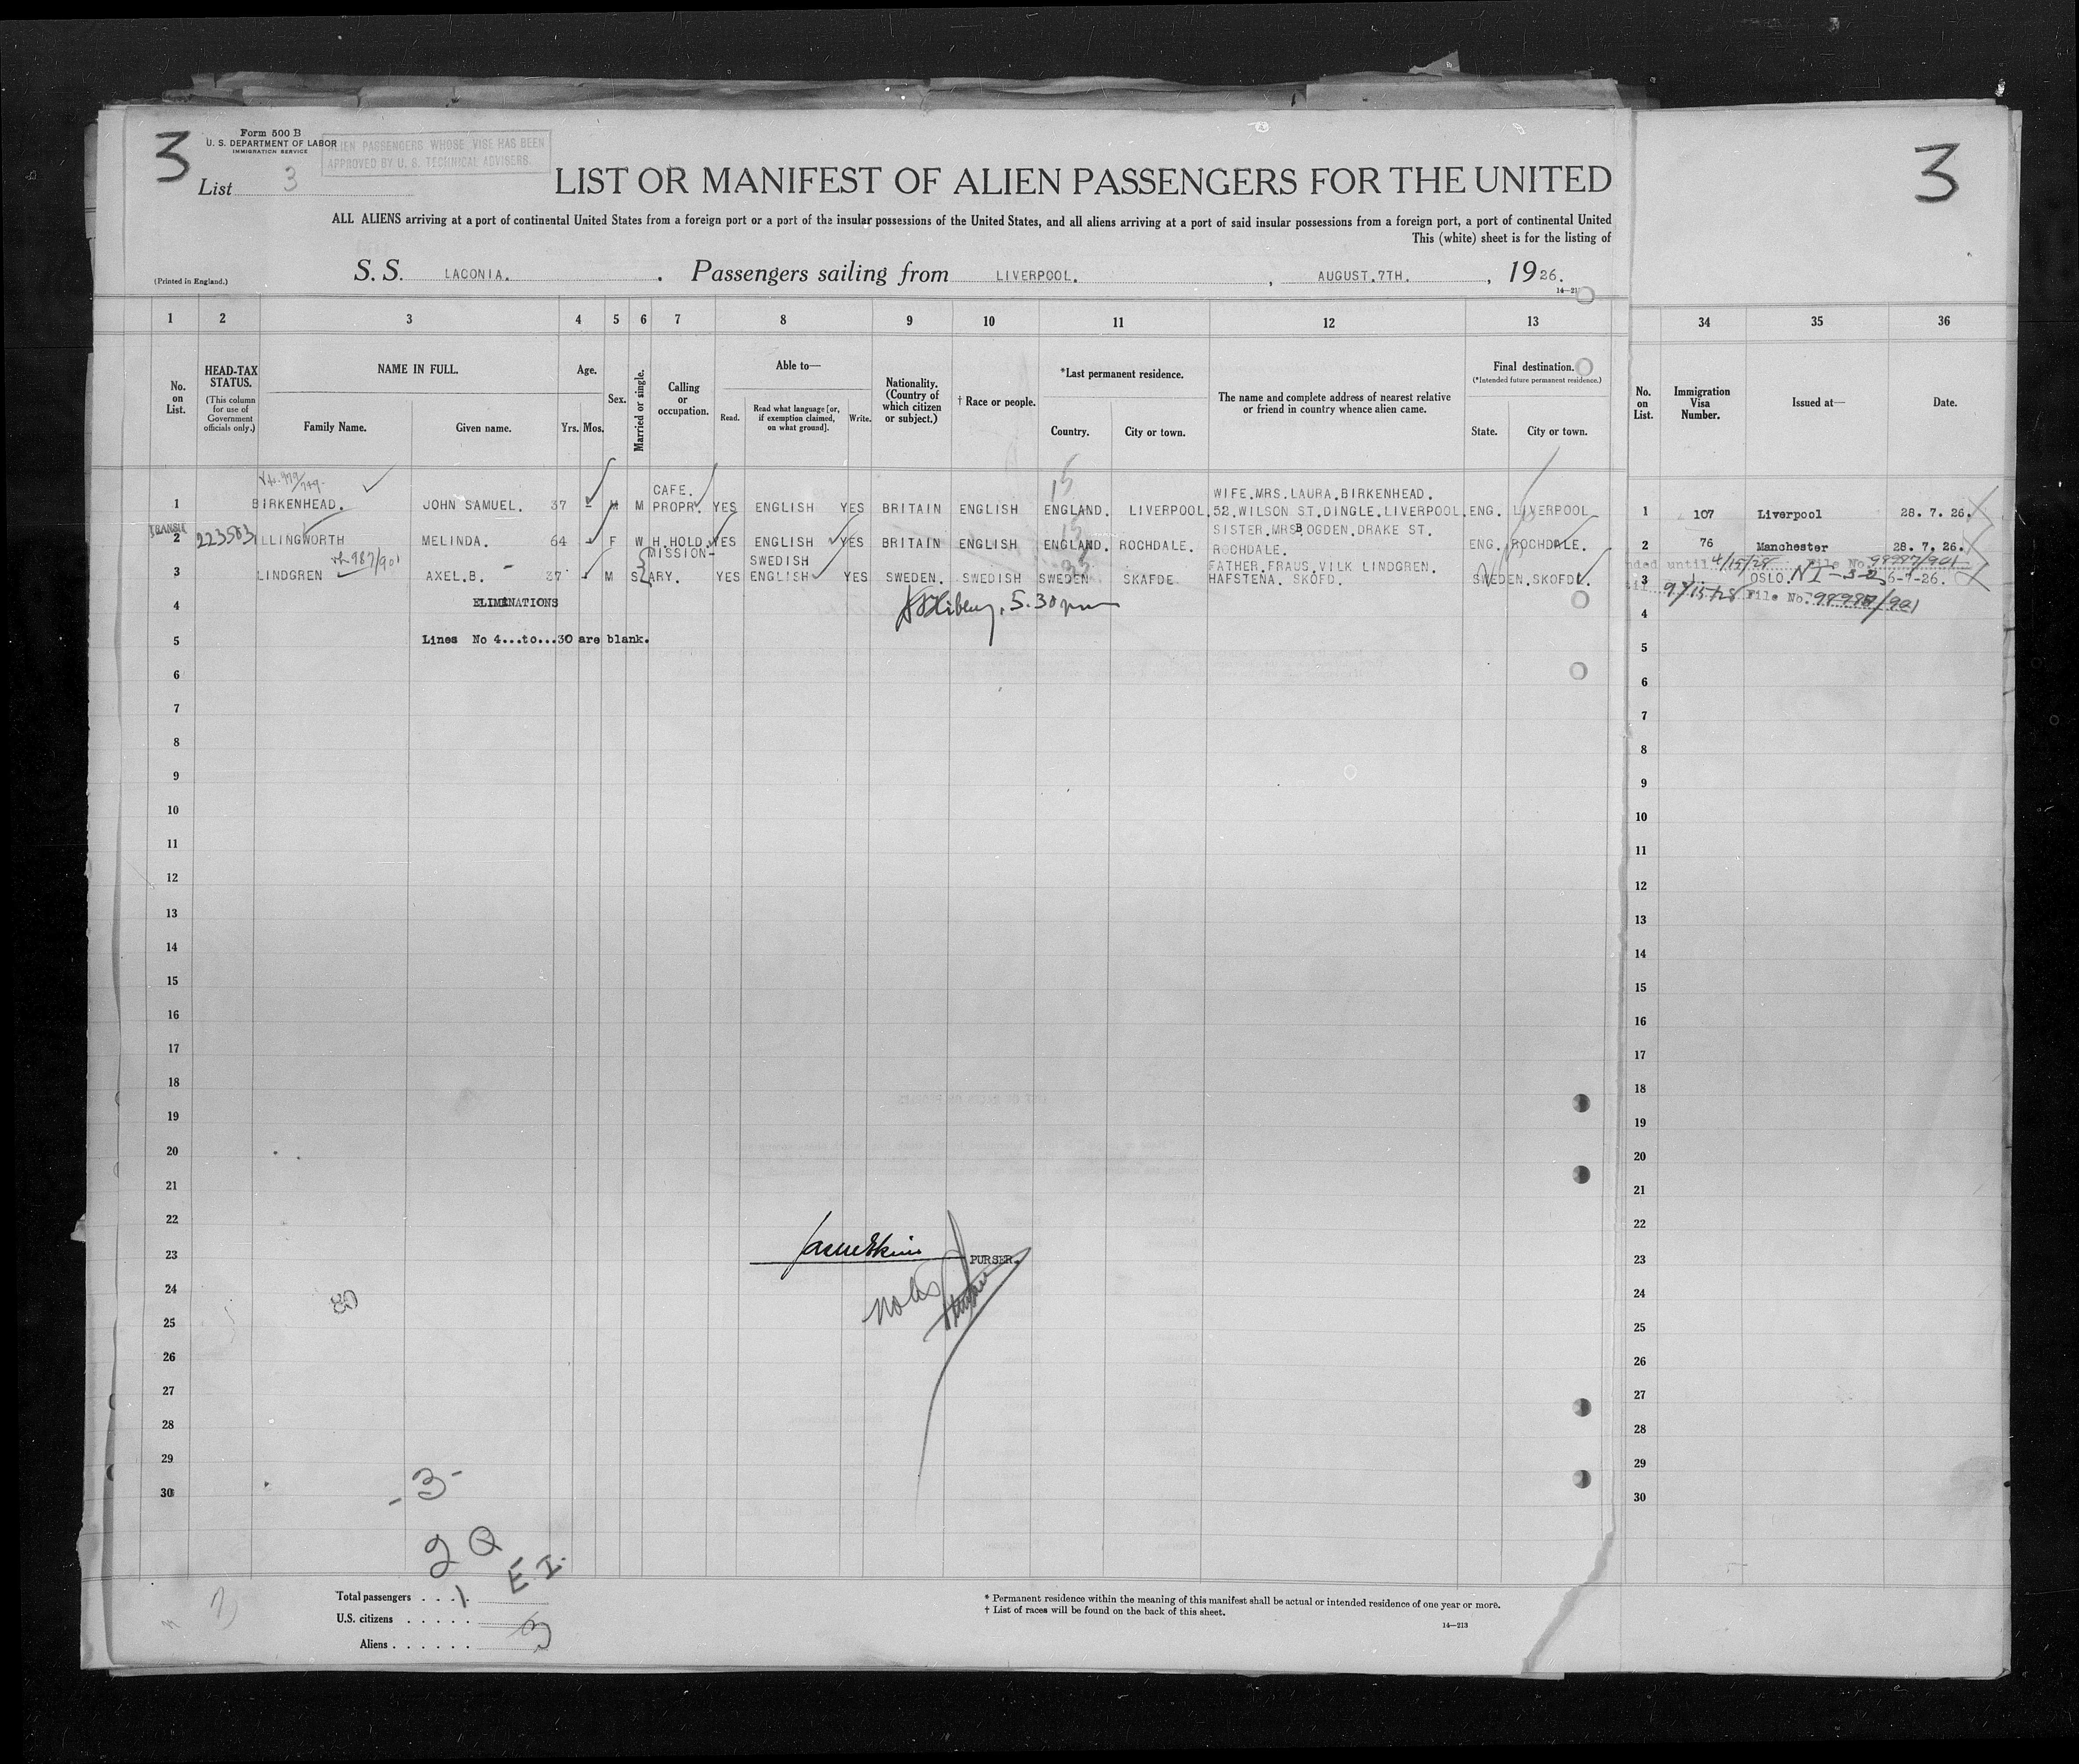 3
Form 500 B
U. S. DEPARTMENT OF LABOR
IMMIGRATION SERVICE
ALIEN PASSENGERS WHOSE VISE HAS BEEN
APPROVED BY U. S. TECHNICAL ADVISERS.
List 3
3
LIST OR MANIFEST OF ALIEN PASSENGERS FOR THE UNITED
ALL ALIENS arriving at a port of continental United States from a foreign port or a port of the insular possessions of the United States, and all aliens arriving at a port of said insular possessions from a foreign port, a port of continental United
This (white) sheet is for the listing of
(Printed in England.)
S. S. LACONIA. . Passengers sailing from LIVERPOOL. , AUGUST.7TH. , 1926.
1 2 3 4 5 6 7 8 9 10 11 12 13 34 35 36
No. on List.
HEAD-TAX STATUS.
(This column for use of Government officials only.)
NAME IN FULL.
Family Name.
Given name.
Age.
Yrs. Mos.
Sex.
Married or single.
Calling or occupation.
Able to—
Read.
Read what language [or, if exemption claimed, on what ground].
Write.
Nationality. (Country of which citizen or subject.)
† Race or people.
*Last permanent residence.
Country.
City or town.
The name and complete address of nearest relative or friend in country whence alien came.
Final destination.
(*Intended future permanent residence.)
State.
City or town.
No. on List.
Immigration Visa Number.
Issued at—
Date.
CAFE. WIFE.MRS.LAURA.BIRKENHEAD.
1 BIRKENHEAD. JOHN SAMUEL. 37 M M PROPR. YES ENGLISH YES BRITAIN ENGLISH ENGLAND. LIVERPOOL. 52.WILSON ST.DINGLE.LIVERPOOL. ENG. LIVERPOOL 1 107 Liverpool 28. 7. 26.
TRANSIT SISTER.MRS B OGDEN.DRAKE ST.
2 223563 ILLINGWORTH MELINDA. 64 F W H.HOLD. YES ENGLISH YES BRITAIN ENGLISH ENGLAND. ROCHDALE. ROCHDALE. ENG. ROCHDALE. 2 76 Manchester 28. 7. 26.
987/901 MISSION- SWEDISH FATHER.FRAUS.VILK LINDGREN.
3 LINDGREN AXEL.B. 37 M S ARY. YES ENGLISH YES SWEDEN. SWEDISH SWEDEN SKAFDE. HAFSTENA. SKOFD. SWEDEN.SKOFD. 3 OSLO. 6-7-26.
File No. 99987/901
4 ELIMINATIONS 5.30 pm 4
5 Lines No 4...to...30 are blank. 5
6 6
7 7
8 8
9 9
10 10
11 11
12 12
13 13
14 14
15 15
16 16
17 17
18 18
19 19
20 20
21 21
22 22
23 PURSER. 23
24 24
25 25
26 26
27 27
28 28
29 29
30 30
-3-
2 Q
1 E I.
Total passengers
U.S. citizens
Aliens 3
* Permanent residence within the meaning of this manifest shall be actual or intended residence of one year or more.
† List of races will be found on the back of this sheet.
14—213